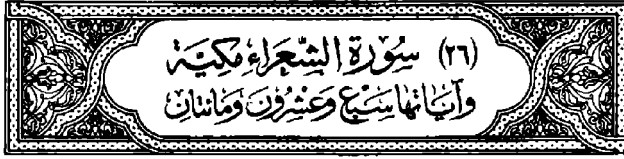 (٢٦) سُورَةُ الشُّعَرَاءِ مَكِّيَّة
وَآيَاتُهَا سَبْعٌ وَعِشْرُونَ وَمَائتَانِ